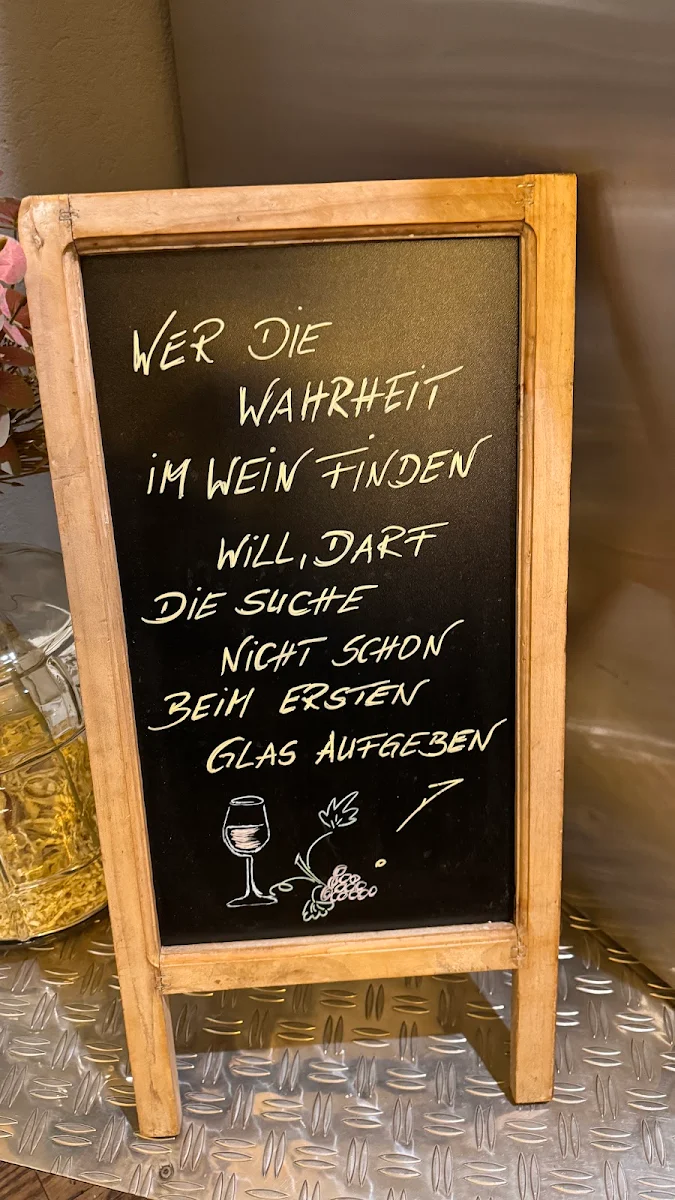 WER DIE
WAHRHEIT
IM WEIN FINDEN
WILL, DARF
DIE SUCHE
NICHT SCHON
BEIM ERSTEN
GLAS AUFGEBEN
!